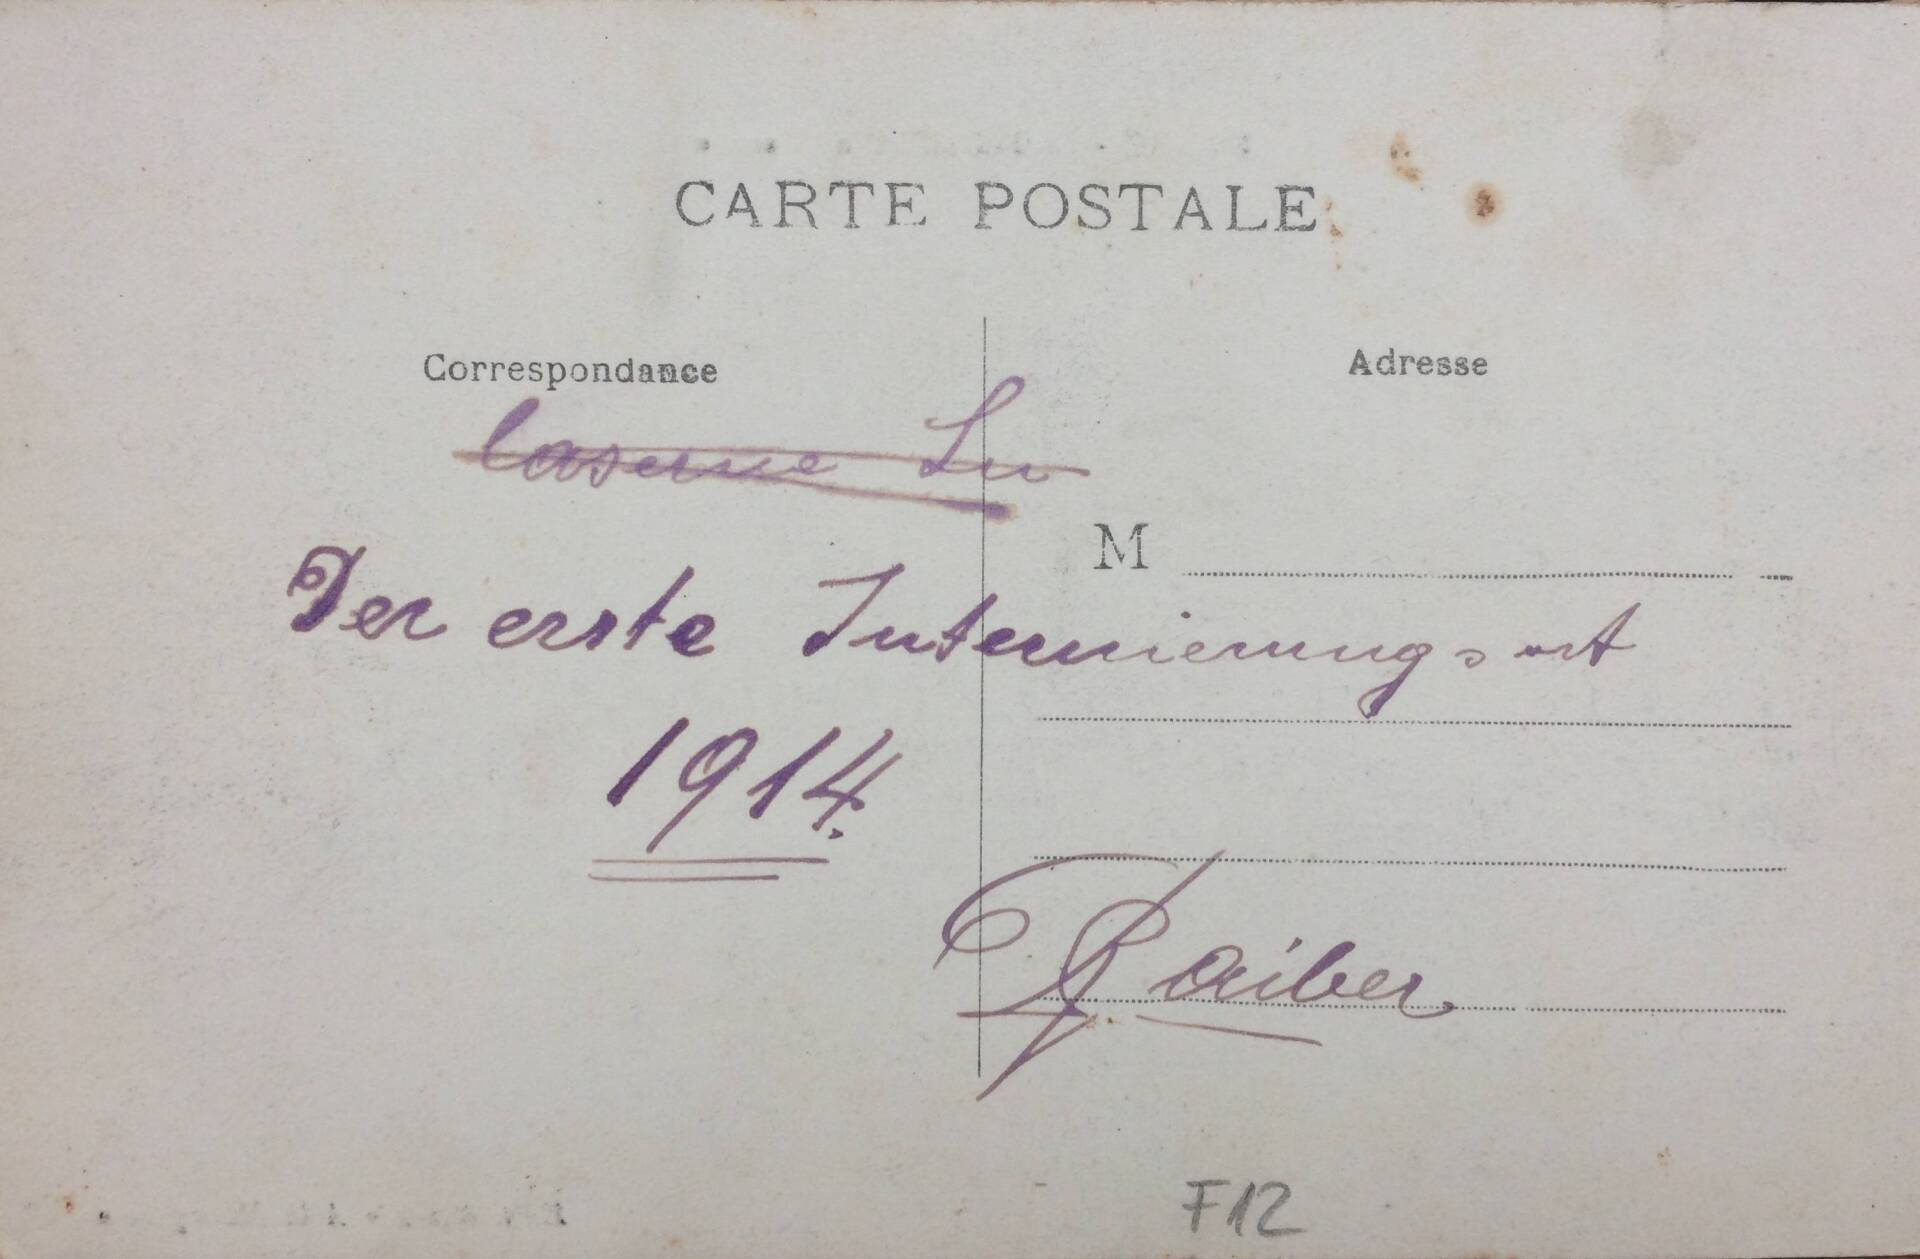 CARTE POSTALE
Correspondance
Adresse
Caserne Lu
M
Der erste Internierungsort
1914.
Raiber
F12